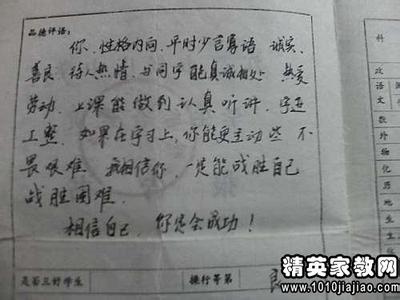 品德评语:
你,性格内向,平时少言寡语 诚实、
善良 待人热情、与同学能真诚相处 热爱
劳动、上课能做到认真听讲、字迹
工整、如果在学习上,你能更主动些 不
畏艰难 我相信你,一定能战胜自己
战胜困难、
相信自己,你定会成功!
是否三好学生
操行等第
良
科
政
语
数
外
物
化
历
地
生
精英家教网
www.1010jiajiao.com